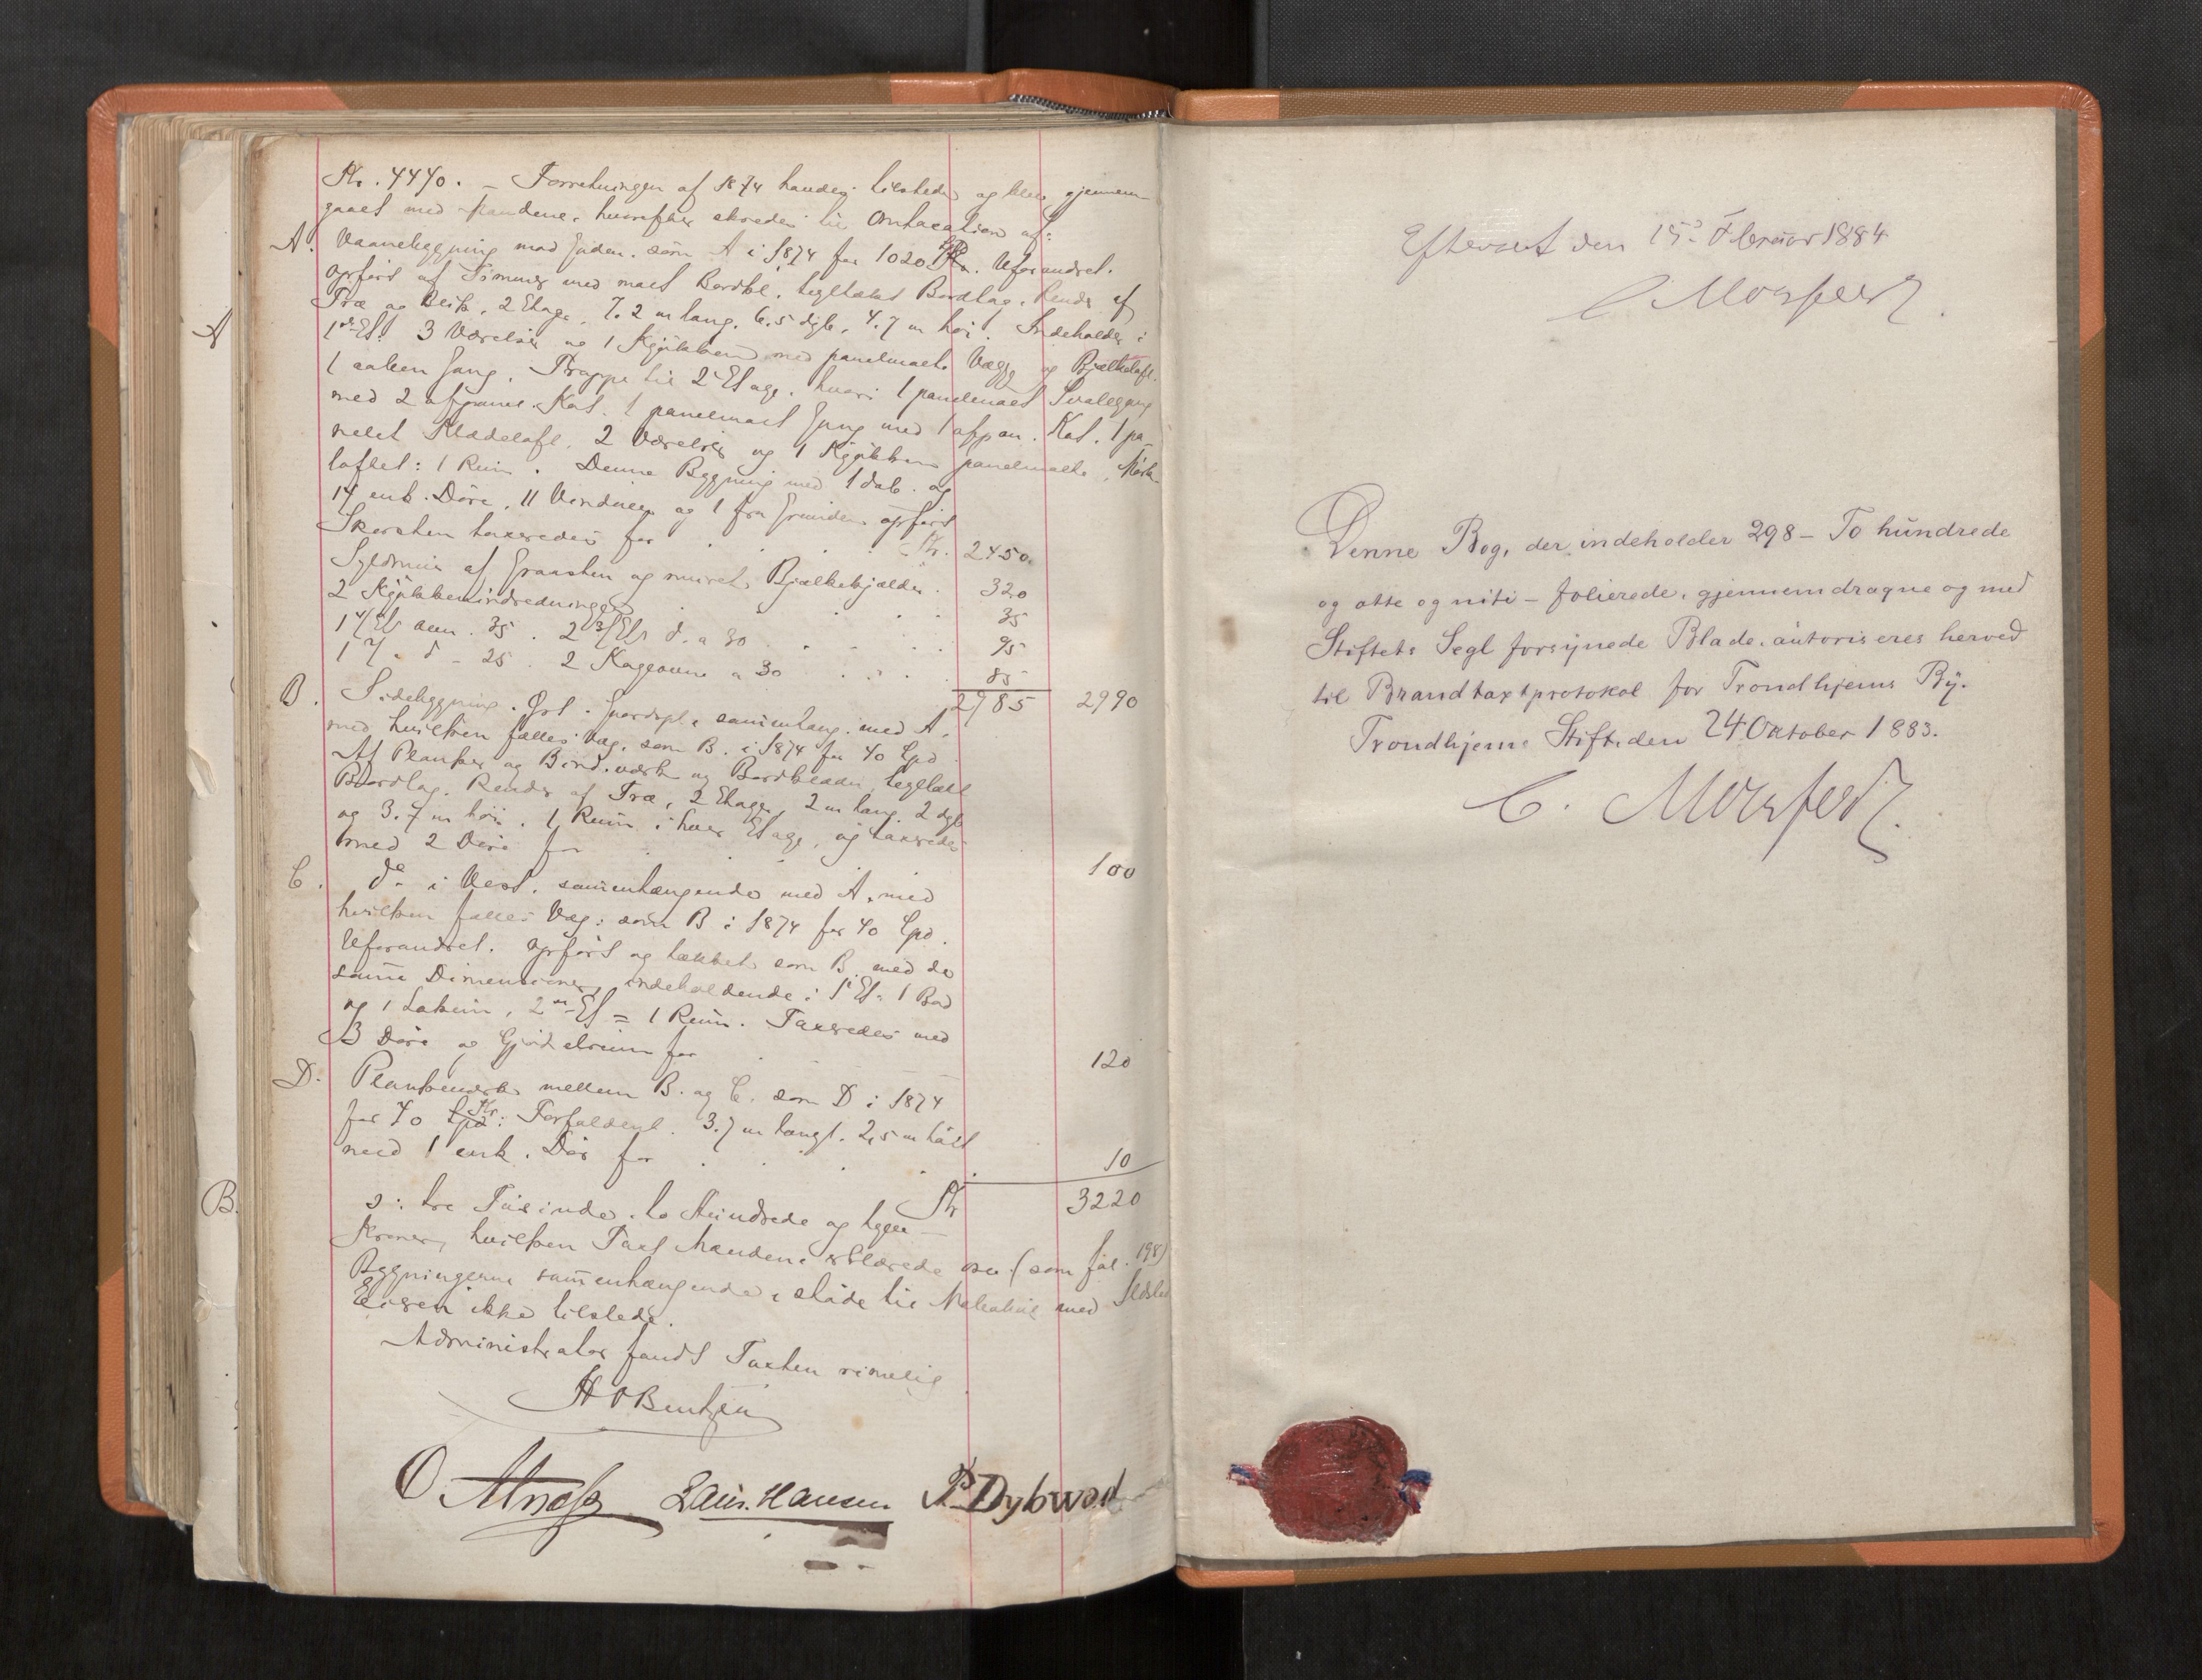 Kr. 4440. – Forretningen af 1874 havdes tilstede og blev gjennem-
gaaet med Mændene, hvorefter skredes til Omtaxation af:
A. Vaanebygning mod Gaden, som A i 1874 for 1020 Spd. Uforandret.
Opført af Tømmer med malt Bordkl. tegltækt Bordtag. Render af
Træ og Blik, 2 Etage, 7.2 m lang, 6.5 dyb, 4.7 m høi. Indeholder i
1ste Et. 3 Værelser og 1 Kjøkken med panelmalte Vægge og Bjælkeloft.
1 aaben Gang. Trappe til 2 Etage, hvori 1 panelmalt Svalegang
med 2 afpanel. Kot. 1 panelmalt Gang med 1 afpan. Kot. 1 pa-
nelet Klædeloft, 2 Værelser og 1 Kjøkken panelmalte, Mørk-
loftet: 1 Rum. Denne Bygning med 1 dob. og
14 enk. Døre, 11 Vinduer og 1 fra Grunden opført
Skorsten taxeredes for Kr. 2450.
Syldmur af Graasten og muret Bjælkekjælder. 320
2 Kjøkkenindredninger 35
1 4/Es oun. 35. 2 3/Es do a 30 95
1 2/ - do - 25. 2 Kageovne a 30 85
2985 2990
B. Sidebygning. Øst. Gaardspl. sammenhang. med A.
med hvilken fælles Væg, som B. i 1874 for 40 Spd.
Af Planker og Bindværk og Bordklædn. tegltækt
Bordtag. Render af Træ, 2 Etager, 2 m lang, 2 dyb
og 3.7 m høi. 1 Rum i hver Etage, og taxeredes
med 2 Døre for 100
C. do i Vest. sammenhængende med A. med
hvilken fælles Væg: som B i 1874 for 40 Spd.
Uforandret. Opført og tækket som B. med de
samme Dimensioner, indeholdende i 1 Et. 1 Bod
og 1 Lokum, 2den Et = 1 Rum. Taxeredes med
3 Døre og Gjødselrum for 120
D. Plankeværk mellem B. og C. som D i 1874
for 40 Spd Kr: Forfaldent. 3.7 m langt. 2,5 m høit
med 1 enk. Dør for 10
Kr 3220
ɔ: tre Tusinde to Hundrede og tyve
Kroner, hvilken Taxt Mændene erklærede osv. (som fol. 198)
Bygningerne sammenhængende, støde til Matrikul med Ildsted
Eieren ikke tilstede.
Administrator fandt Taxten rimelig
H O Bentzen
O Alnæs Laur. Hansen P Dybwad
A
B.
Efterseet den 15de Februar 1884
C Morsfeldt.
Denne Bog, der indeholder 298 – To hundrede
og otte og niti – folierede, gjennemdragne og med
Stiftets Segl forsynede Blade, autoriseres herved
til Brandtaxtprotokol for Trondhjems By.
Trondhjems Stift, den 24 Oktober 1883.
C. Morsfeldt.